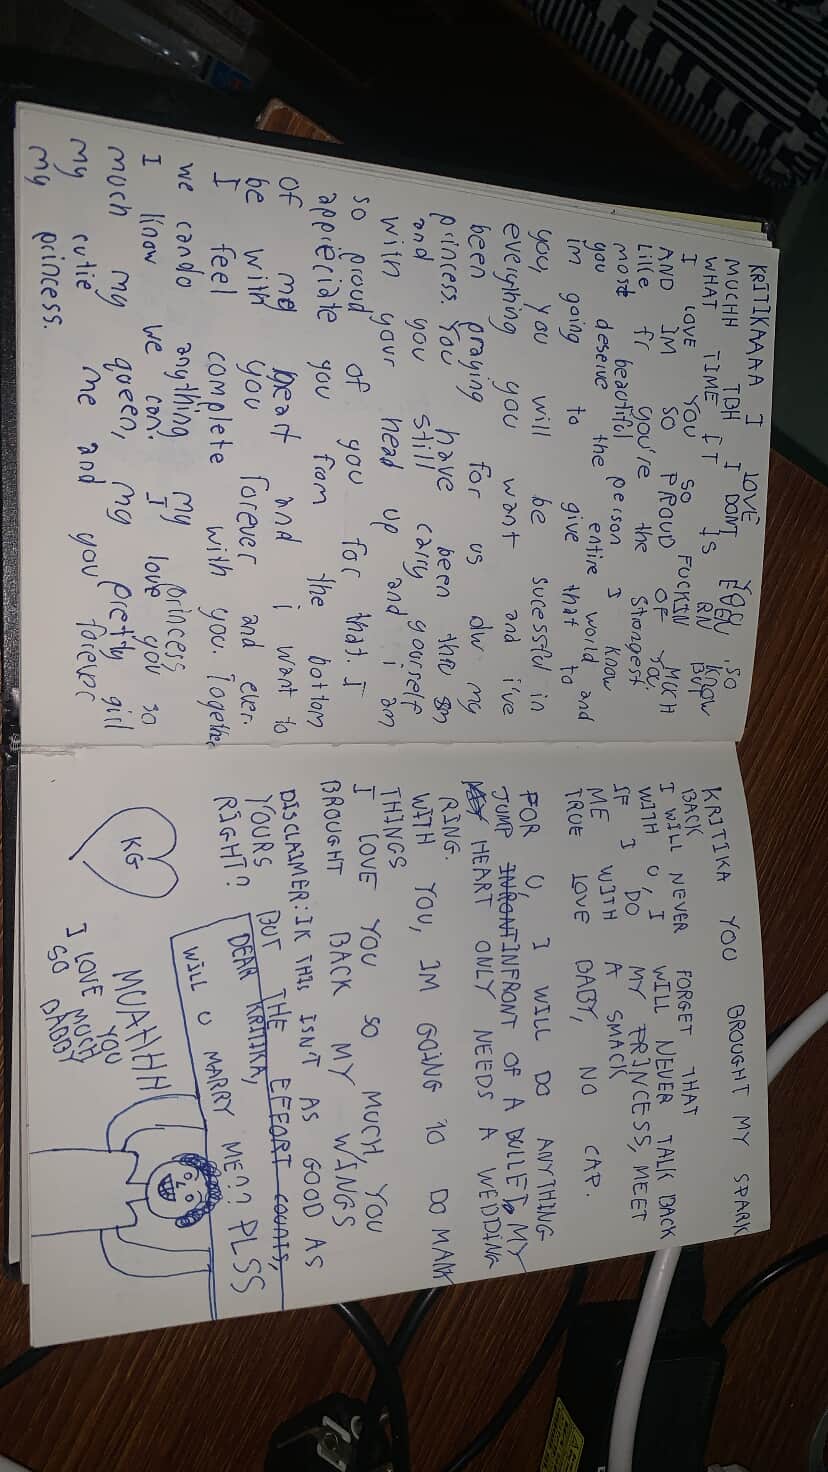 KRITIKAAAA I LOVE YOU SO
MUCHH TBH I DONT EVEN KNOW
WHAT TIME IT IS RN BUT
I LOVE YOU SO FUCKIN MUCH
AND IM SO PROUD OF YOU.
Like fr you're the strongest
most beautiful person I know
you deserve the entire world and
im going to give that to
you, you will be sucessful in
everything you want and i've
been praying for us dw my
princess. You have been thru sm
and you still carry yourself
with your head up and i am
so proud of you for that. I
appreciate you from the bottom
of my heart and i want to
be with you forever and ever.
I feel complete with you. Together
we cando anything my princess,
I know we can. I love you so
much my queen, my pretty girl
my cutie me and you forever
my princess.
KRITIKA YOU BROUGHT MY SPARK
BACK
I WILL NEVER FORGET THAT
WITH U, I WILL NEVER TALK BACK
IF I DO MY PRINCESS, MEET
ME WITH A SMACK
TRUE LOVE BABY, NO CAP.
FOR U, I WILL DO ANYTHING
JUMP INFRONT OF A BULLET, MY
HEART ONLY NEEDS A WEDDING
RING.
WITH YOU, IM GOING TO DO MANY
THINGS
I LOVE YOU SO MUCH, YOU
BROUGHT BACK MY WINGS
DISCLAIMER: IK THIS ISN'T AS GOOD AS
YOURS BUT THE EFFORT COUNTS,
RIGHT?
DEAR KRITIKA,
WILL U MARRY ME?? PLSS
KG
MUAHHH
I LOVE YOU
SO MUCH
DADDY